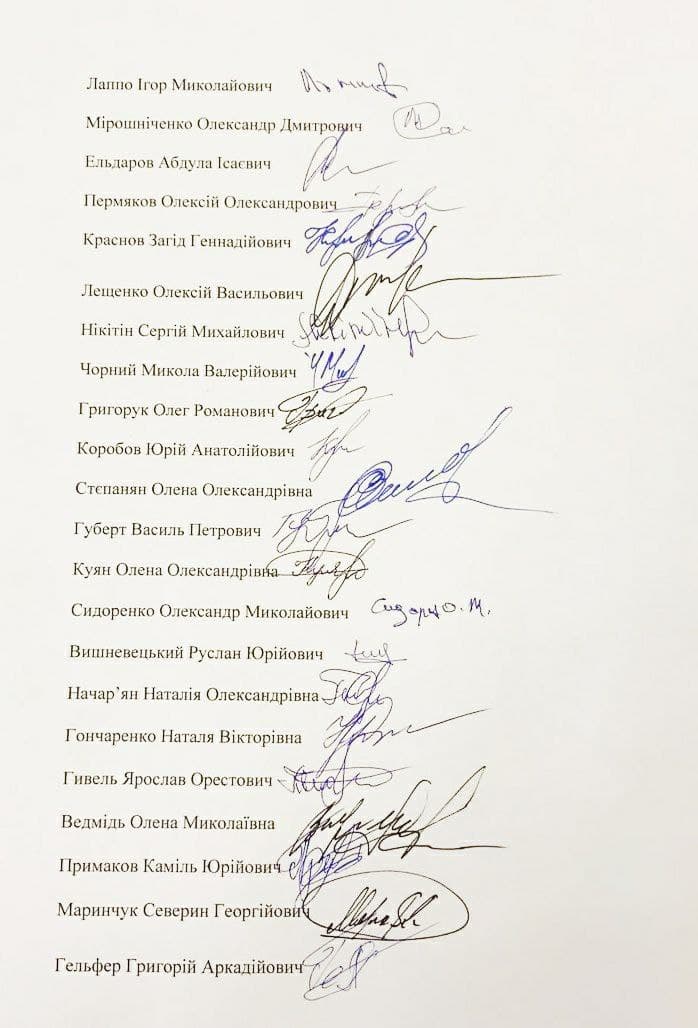 Лаппо Ігор Миколайович
Мірошніченко Олександр Дмитрович
Ельдаров Абдула Ісаєвич
Пермяков Олексій Олександрович
Краснов Загід Геннадійович
Лещенко Олексій Васильович
Нікітін Сергій Михайлович
Чорний Микола Валерійович
Григорук Олег Романович
Коробов Юрій Анатолійович
Стєпанян Олена Олександрівна
Губерт Василь Петрович
Куян Олена Олександрівна
Сидоренко Олександр Миколайович
Вишневецький Руслан Юрійович
Начар’ян Наталія Олександрівна
Гончаренко Наталя Вікторівна
Гивель Ярослав Орестович
Ведмідь Олена Миколаївна
Примаков Каміль Юрійович
Маринчук Северин Георгійович
Гельфер Григорій Аркадійович